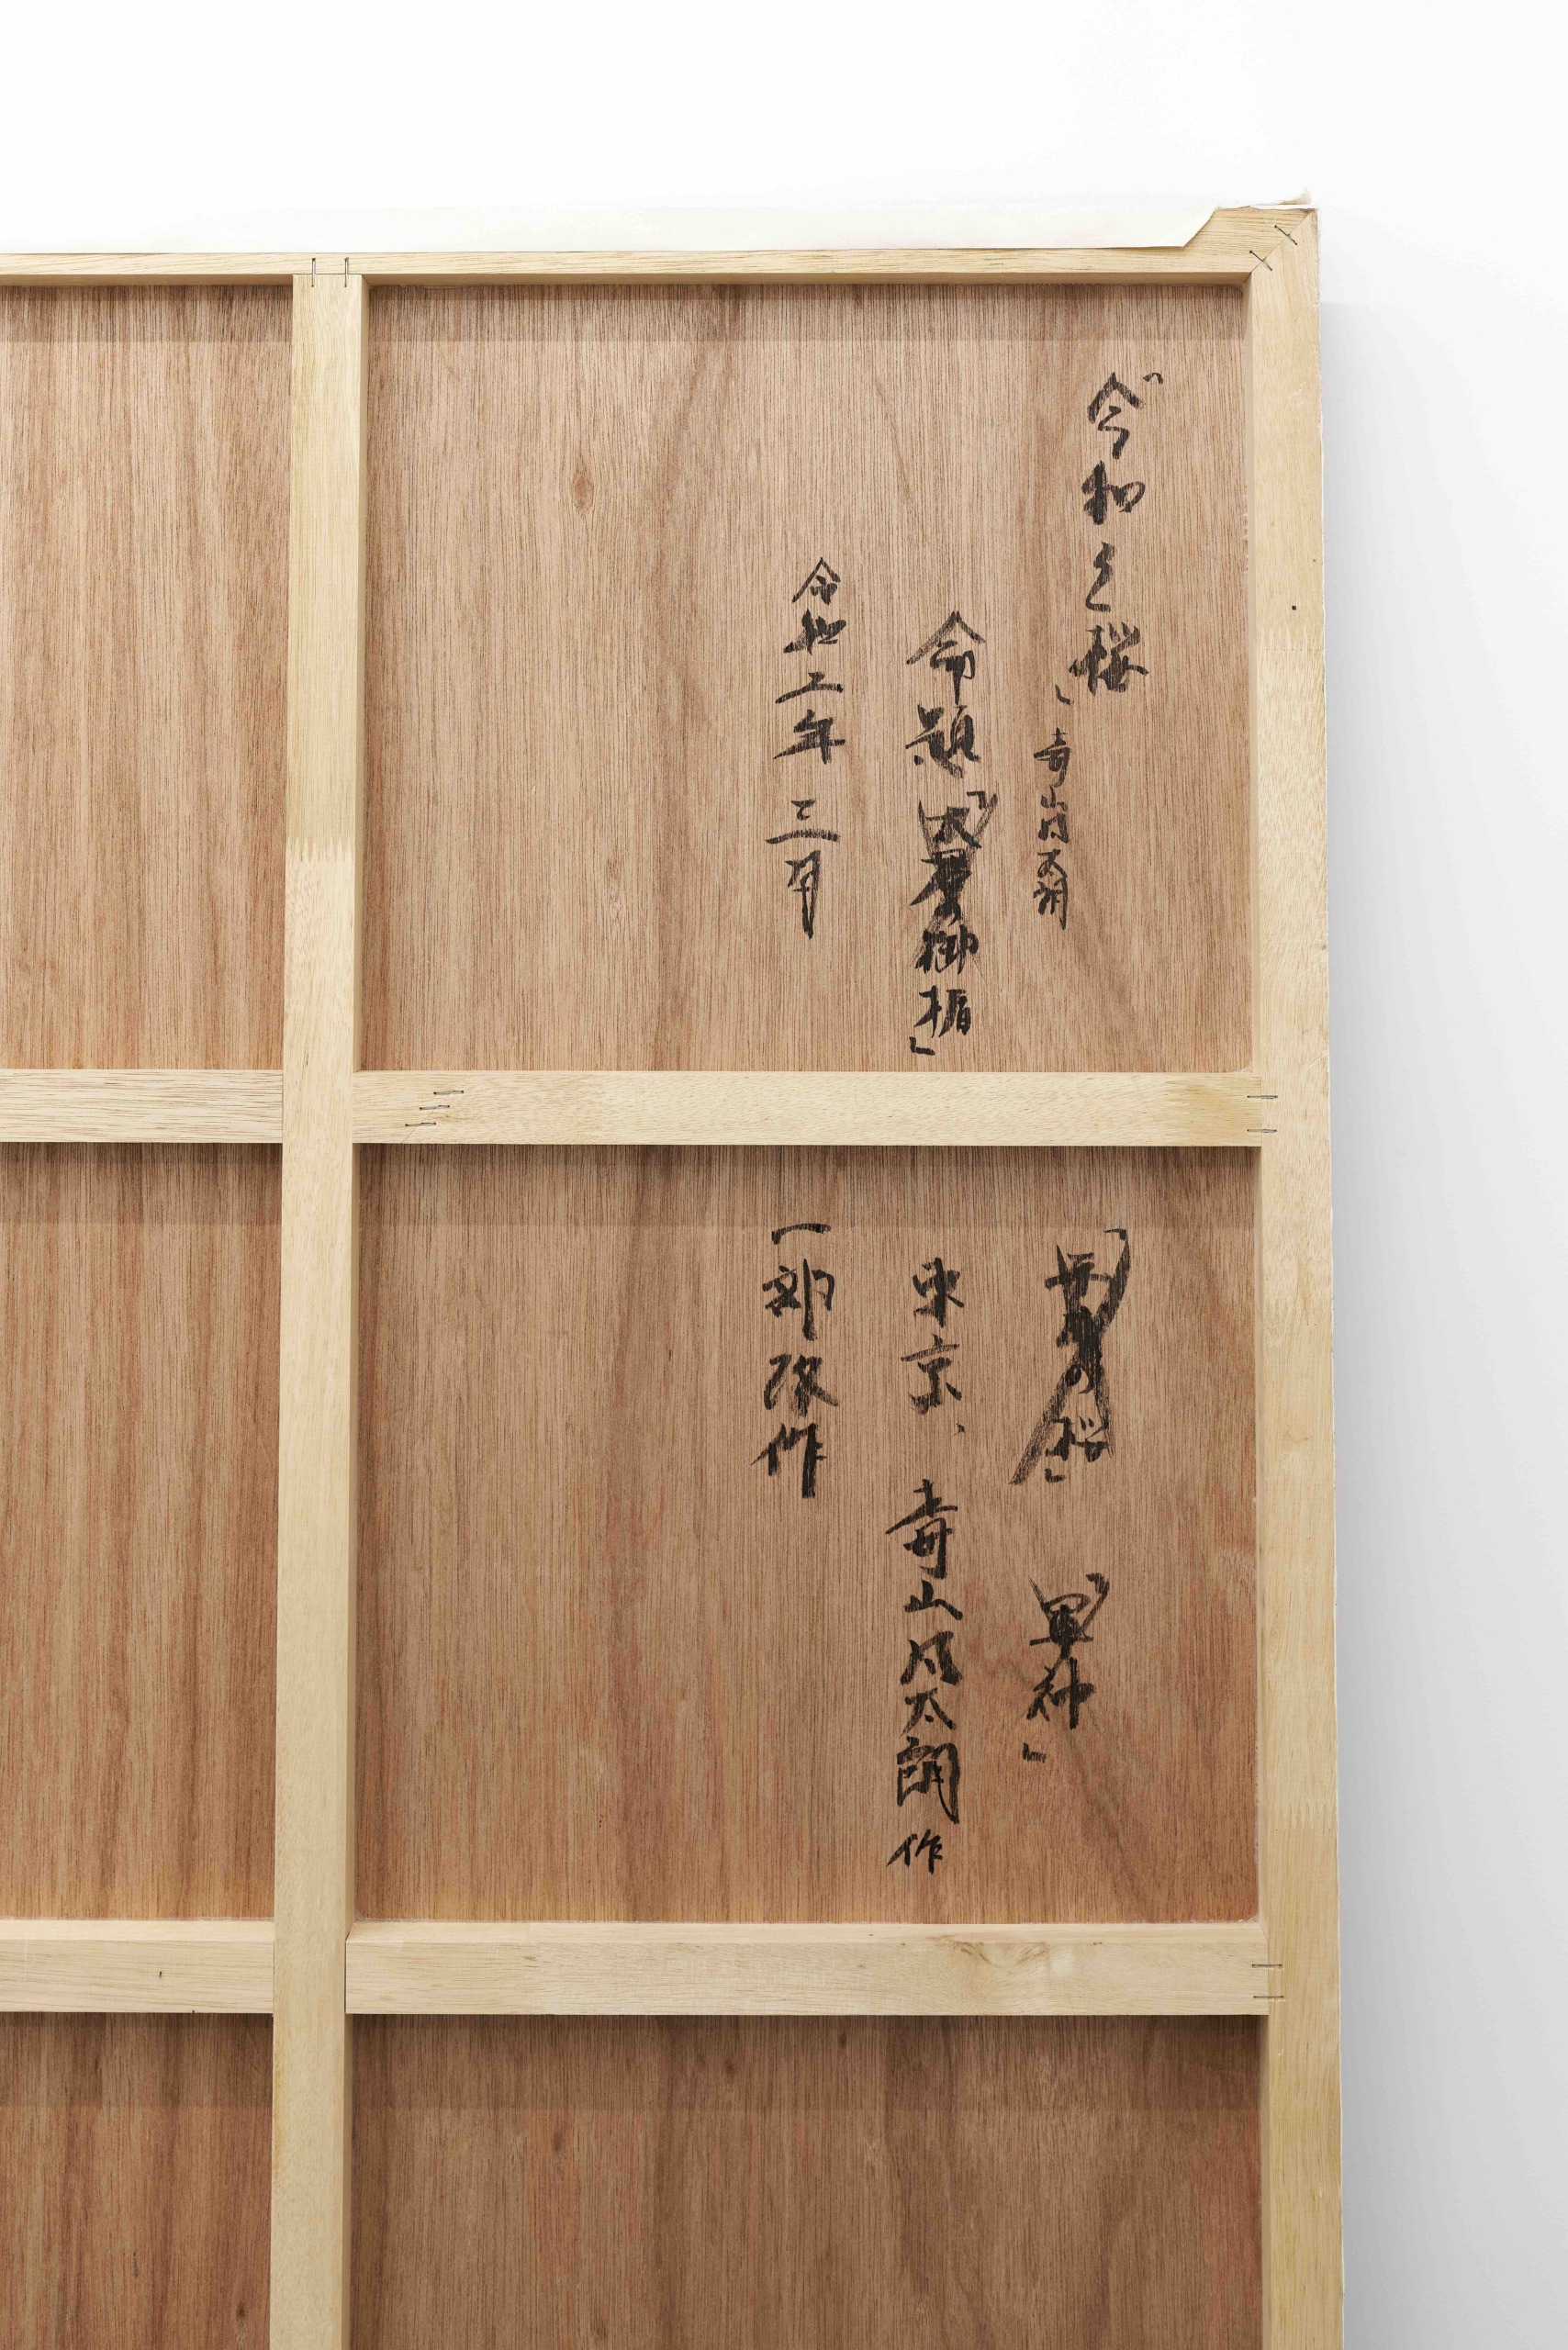 「令和之桜」
奇山風太朗
命題「大君の御楯」
令和二年 三月
「軍神」
東京、 奇山風太朗 作
一部改作